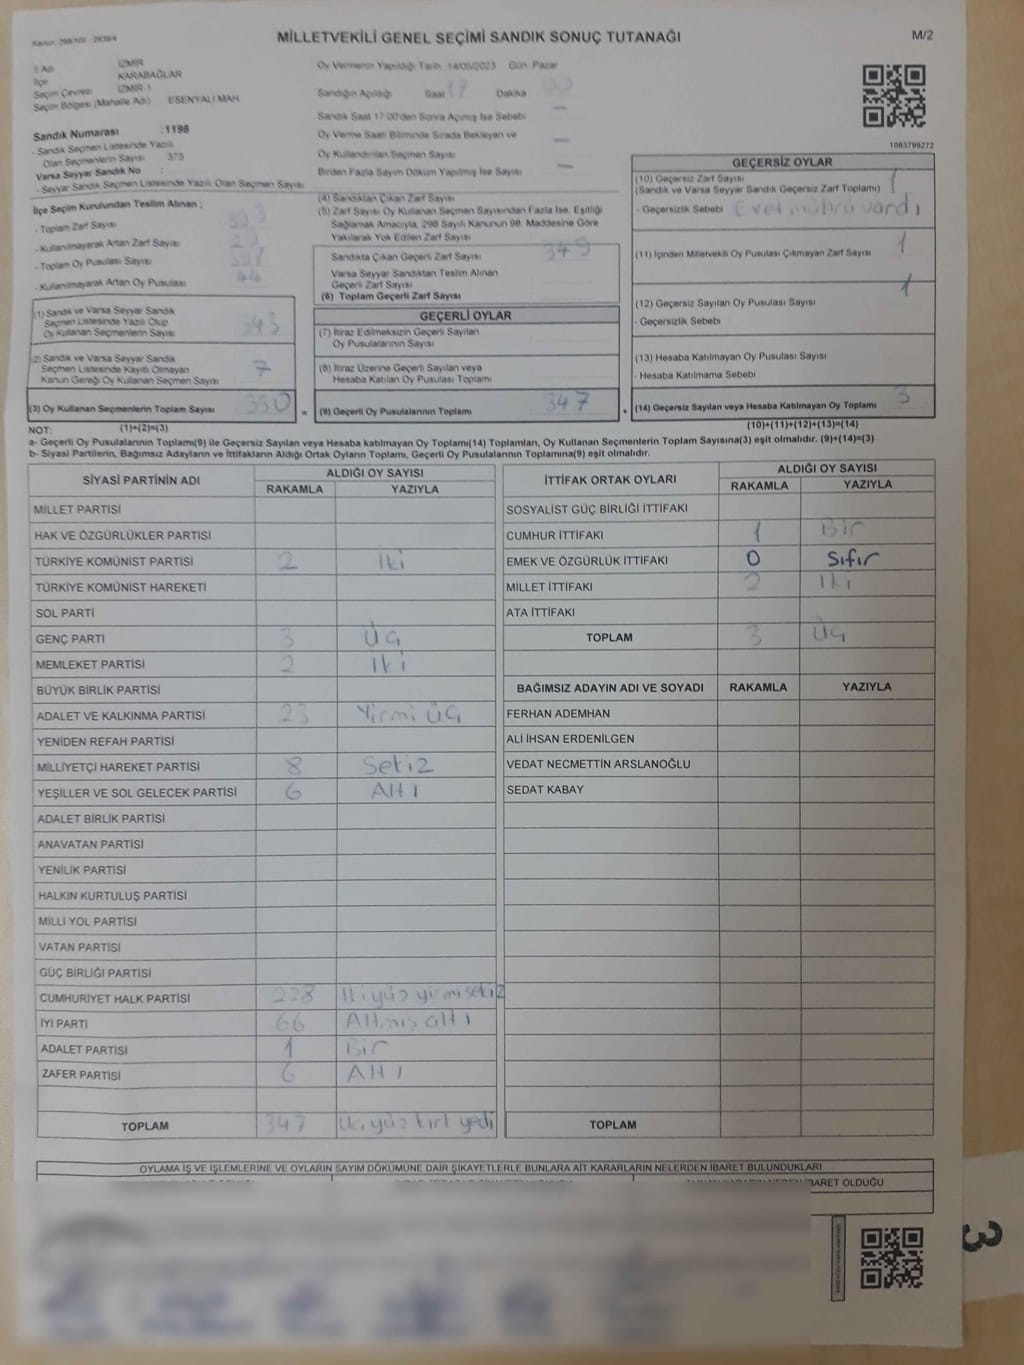 Kanun: 298/105 - 2839/4
MİLLETVEKİLİ GENEL SEÇİMİ SANDIK SONUÇ TUTANAĞI
M/2
İl Adı İZMİR
İlçe KARABAĞLAR
Seçim Çevresi İZMİR-1
Seçim Bölgesi (Mahalle Adı) ESENYALI MAH
Sandık Numarası :1198
- Sandık Seçmen Listesinde Yazılı
Olan Seçmenlerin Sayısı 373
Varsa Seyyar Sandık No :
- Seyyar Sandık Seçmen Listesinde Yazılı Olan Seçmen Sayısı
Oy Vermenin Yapıldığı Tarih 14/05/2023 Gün Pazar
Sandığın Açıldığı Saat 17 Dakika 00
Sandık Saat 17:00'den Sonra Açılmış İse Sebebi —
Oy Verme Saati Bitiminde Sırada Bekleyen ve
Oy Kullandırılan Seçmen Sayısı —
Birden Fazla Sayım Döküm Yapılmış İse Sayısı —
1083799272
İlçe Seçim Kurulundan Teslim Alınan ;
- Toplam Zarf Sayısı 393
- Kullanılmayarak Artan Zarf Sayısı
- Toplam Oy Pusulası Sayısı
- Kullanılmayarak Artan Oy Pusulası 44
(1) Sandık ve Varsa Seyyar Sandık
Seçmen Listesinde Yazılı Olup
Oy Kullanan Seçmenlerin Sayısı 343
(2) Sandık ve Varsa Seyyar Sandık
Seçmen Listesinde Kayıtlı Olmayan
Kanun Gereği Oy Kullanan Seçmen Sayısı 7
(3) Oy Kullanan Seçmenlerin Toplam Sayısı 350 =
(4) Sandıktan Çıkan Zarf Sayısı
(5) Zarf Sayısı Oy Kullanan Seçmen Sayısından Fazla İse, Eşitliği
Sağlamak Amacıyla, 298 Sayılı Kanunun 98. Maddesine Göre
Yakılarak Yok Edilen Zarf Sayısı
Sandıkta Çıkan Geçerli Zarf Sayısı 349
Varsa Seyyar Sandıktan Teslim Alınan
Geçerli Zarf Sayısı
(6) Toplam Geçerli Zarf Sayısı
GEÇERLİ OYLAR
(7) İtiraz Edilmeksizin Geçerli Sayılan
Oy Pusulalarının Sayısı
(8) İtiraz Üzerine Geçerli Sayılan veya
Hesaba Katılan Oy Pusulası Toplamı
(9) Geçerli Oy Pusulalarının Toplamı 347 +
GEÇERSİZ OYLAR
(10) Geçersiz Zarf Sayısı 1
(Sandık ve Varsa Seyyar Sandık Geçersiz Zarf Toplamı)
- Geçersizlik Sebebi Evet mührü vardı
(11) İçinden Milletvekili Oy Pusulası Çıkmayan Zarf Sayısı 1
(12) Geçersiz Sayılan Oy Pusulası Sayısı 1
- Geçersizlik Sebebi
(13) Hesaba Katılmayan Oy Pusulası Sayısı
- Hesaba Katılmama Sebebi
(14) Geçersiz Sayılan veya Hesaba Katılmayan Oy Toplamı 3
NOT: (1)+(2)=(3) (10)+(11)+(12)+(13)=(14)
a- Geçerli Oy Pusulalarının Toplamı(9) ile Geçersiz Sayılan veya Hesaba katılmayan Oy Toplamı(14) Toplamları, Oy Kullanan Seçmenlerin Toplam Sayısına(3) eşit olmalıdır. (9)+(14)=(3)
b- Siyasi Partilerin, Bağımsız Adayların ve İttifakların Aldığı Ortak Oyların Toplamı, Geçerli Oy Pusulalarının Toplamına(9) eşit olmalıdır.
SİYASİ PARTİNİN ADI ALDIĞI OY SAYISI
RAKAMLA YAZIYLA
MİLLET PARTİSİ
HAK VE ÖZGÜRLÜKLER PARTİSİ
TÜRKİYE KOMÜNİST PARTİSİ 2 İki
TÜRKİYE KOMÜNİST HAREKETİ
SOL PARTİ
GENÇ PARTİ 3 Üç
MEMLEKET PARTİSİ 2 İki
BÜYÜK BİRLİK PARTİSİ
ADALET VE KALKINMA PARTİSİ 23 Yirmi Üç
YENİDEN REFAH PARTİSİ
MİLLİYETÇİ HAREKET PARTİSİ 8 Sekiz
YEŞİLLER VE SOL GELECEK PARTİSİ 6 Altı
ADALET BİRLİK PARTİSİ
ANAVATAN PARTİSİ
YENİLİK PARTİSİ
HALKIN KURTULUŞ PARTİSİ
MİLLİ YOL PARTİSİ
VATAN PARTİSİ
GÜÇ BİRLİĞİ PARTİSİ
CUMHURİYET HALK PARTİSİ 228 İkiyüz yirmisekiz
İYİ PARTİ 66 Altmış altı
ADALET PARTİSİ 1 Bir
ZAFER PARTİSİ 6 Altı
TOPLAM 347 Üçyüz kırk yedi
İTTİFAK ORTAK OYLARI ALDIĞI OY SAYISI
RAKAMLA YAZIYLA
SOSYALİST GÜÇ BİRLİĞİ İTTİFAKI
CUMHUR İTTİFAKI 1 Bir
EMEK VE ÖZGÜRLÜK İTTİFAKI 0 Sıfır
MİLLET İTTİFAKI 2 İki
ATA İTTİFAKI
TOPLAM 3 Üç
BAĞIMSIZ ADAYIN ADI VE SOYADI RAKAMLA YAZIYLA
FERHAN ADEMHAN
ALİ İHSAN ERDENİLGEN
VEDAT NECMETTİN ARSLANOĞLU
SEDAT KABAY
TOPLAM
OYLAMA İŞ VE İŞLEMLERİNE VE OYLARIN SAYIM DÖKÜMÜNE DAİR ŞİKAYETLERLE BUNLARA AİT KARARLARIN NELERDEN İBARET BULUNDUKLARI
İBARET OLDUĞU
3